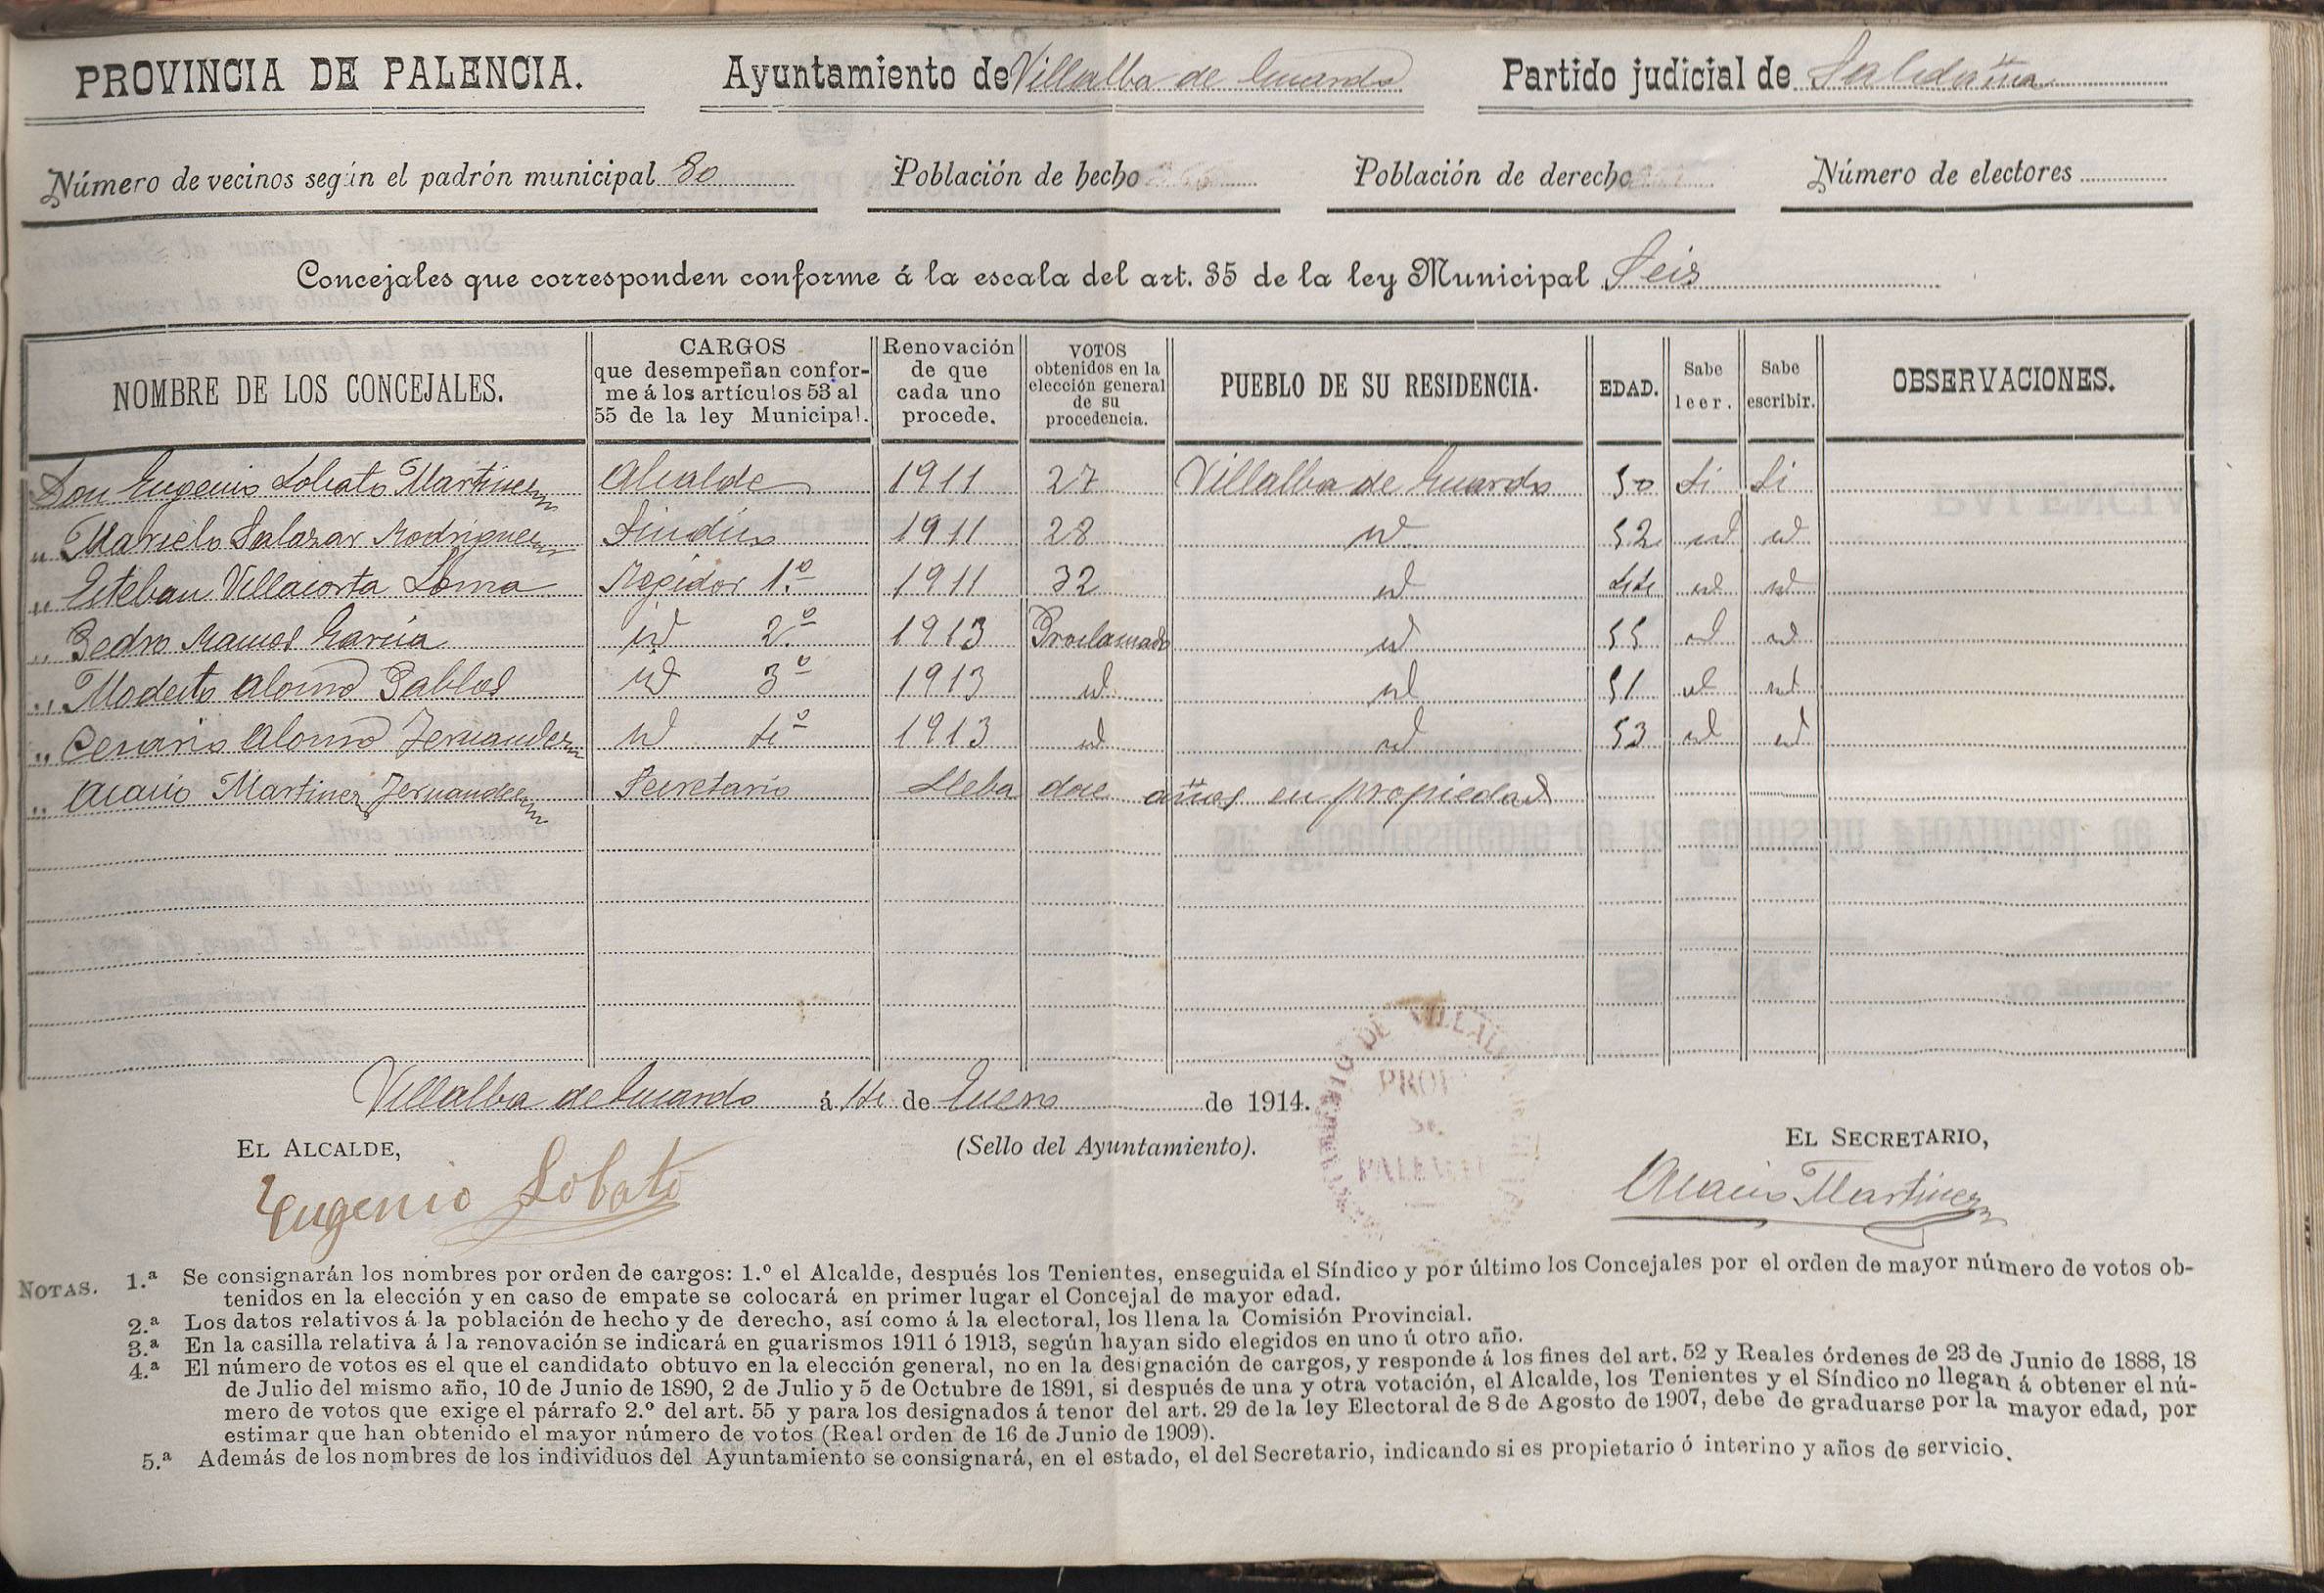 PROVINCIA DE PALENCIA. Ayuntamiento de Villalba de Guardo Partido judicial de Saldaña
Número de vecinos según el padrón municipal 80 Población de hecho Población de derecho Número de electores
Concejales que corresponden conforme á la escala del art. 35 de la ley Municipal Seis
NOMBRE DE LOS CONCEJALES. CARGOS que desempeñan conforme á los artículos 53 al 55 de la ley Municipal. Renovación de que cada uno procede. VOTOS obtenidos en la elección general de su procedencia. PUEBLO DE SU RESIDENCIA. EDAD. Sabe leer. Sabe escribir. OBSERVACIONES.
Don Eugenio Lobato Martinez Alcalde 1911 27 Villalba de Guardo 50 Si Si
„ Marcelo Salazar Rodriguez Sindico 1911 28 id 52 id id
„ Esteban Villacorta Loma Regidor 1.º 1911 32 id 44 id id
„ Pedro Ramos Garcia id 2.º 1913 Proclamado id 55 id id
„ Modesto Alonso Pablos id 3º 1913 id id 51 id id
„ Cesario Alonso Fernandez id 4º 1913 id id 53 id id
„ Acacio Martinez Fernandez Secretario Lleba doce años en propiedad
Villalba de Guardo á 14 de Enero de 1914.
EL ALCALDE, (Sello del Ayuntamiento). EL SECRETARIO,
Eugenio Lobato Acacio Martinez
NOTAS. 1.ª Se consignarán los nombres por orden de cargos: 1.º el Alcalde, después los Tenientes, enseguida el Síndico y por último los Concejales por el orden de mayor número de votos ob-
tenidos en la elección y en caso de empate se colocará en primer lugar el Concejal de mayor edad.
2.ª Los datos relativos á la población de hecho y de derecho, así como á la electoral, los llena la Comisión Provincial.
3.ª En la casilla relativa á la renovación se indicará en guarismos 1911 ó 1913, según hayan sido elegidos en uno ú otro año.
4.ª El número de votos es el que el candidato obtuvo en la elección general, no en la designación de cargos, y responde á los fines del art. 52 y Reales órdenes de 23 de Junio de 1888, 18
de Julio del mismo año, 10 de Junio de 1890, 2 de Julio y 5 de Octubre de 1891, si después de una y otra votación, el Alcalde, los Tenientes y el Síndico no llegan á obtener el nú-
mero de votos que exige el párrafo 2.º del art. 55 y para los designados á tenor del art. 29 de la ley Electoral de 8 de Agosto de 1907, debe de graduarse por la mayor edad, por
estimar que han obtenido el mayor número de votos (Real orden de 16 de Junio de 1909).
5.ª Además de los nombres de los individuos del Ayuntamiento se consignará, en el estado, el del Secretario, indicando si es propietario ó interino y años de servicio.